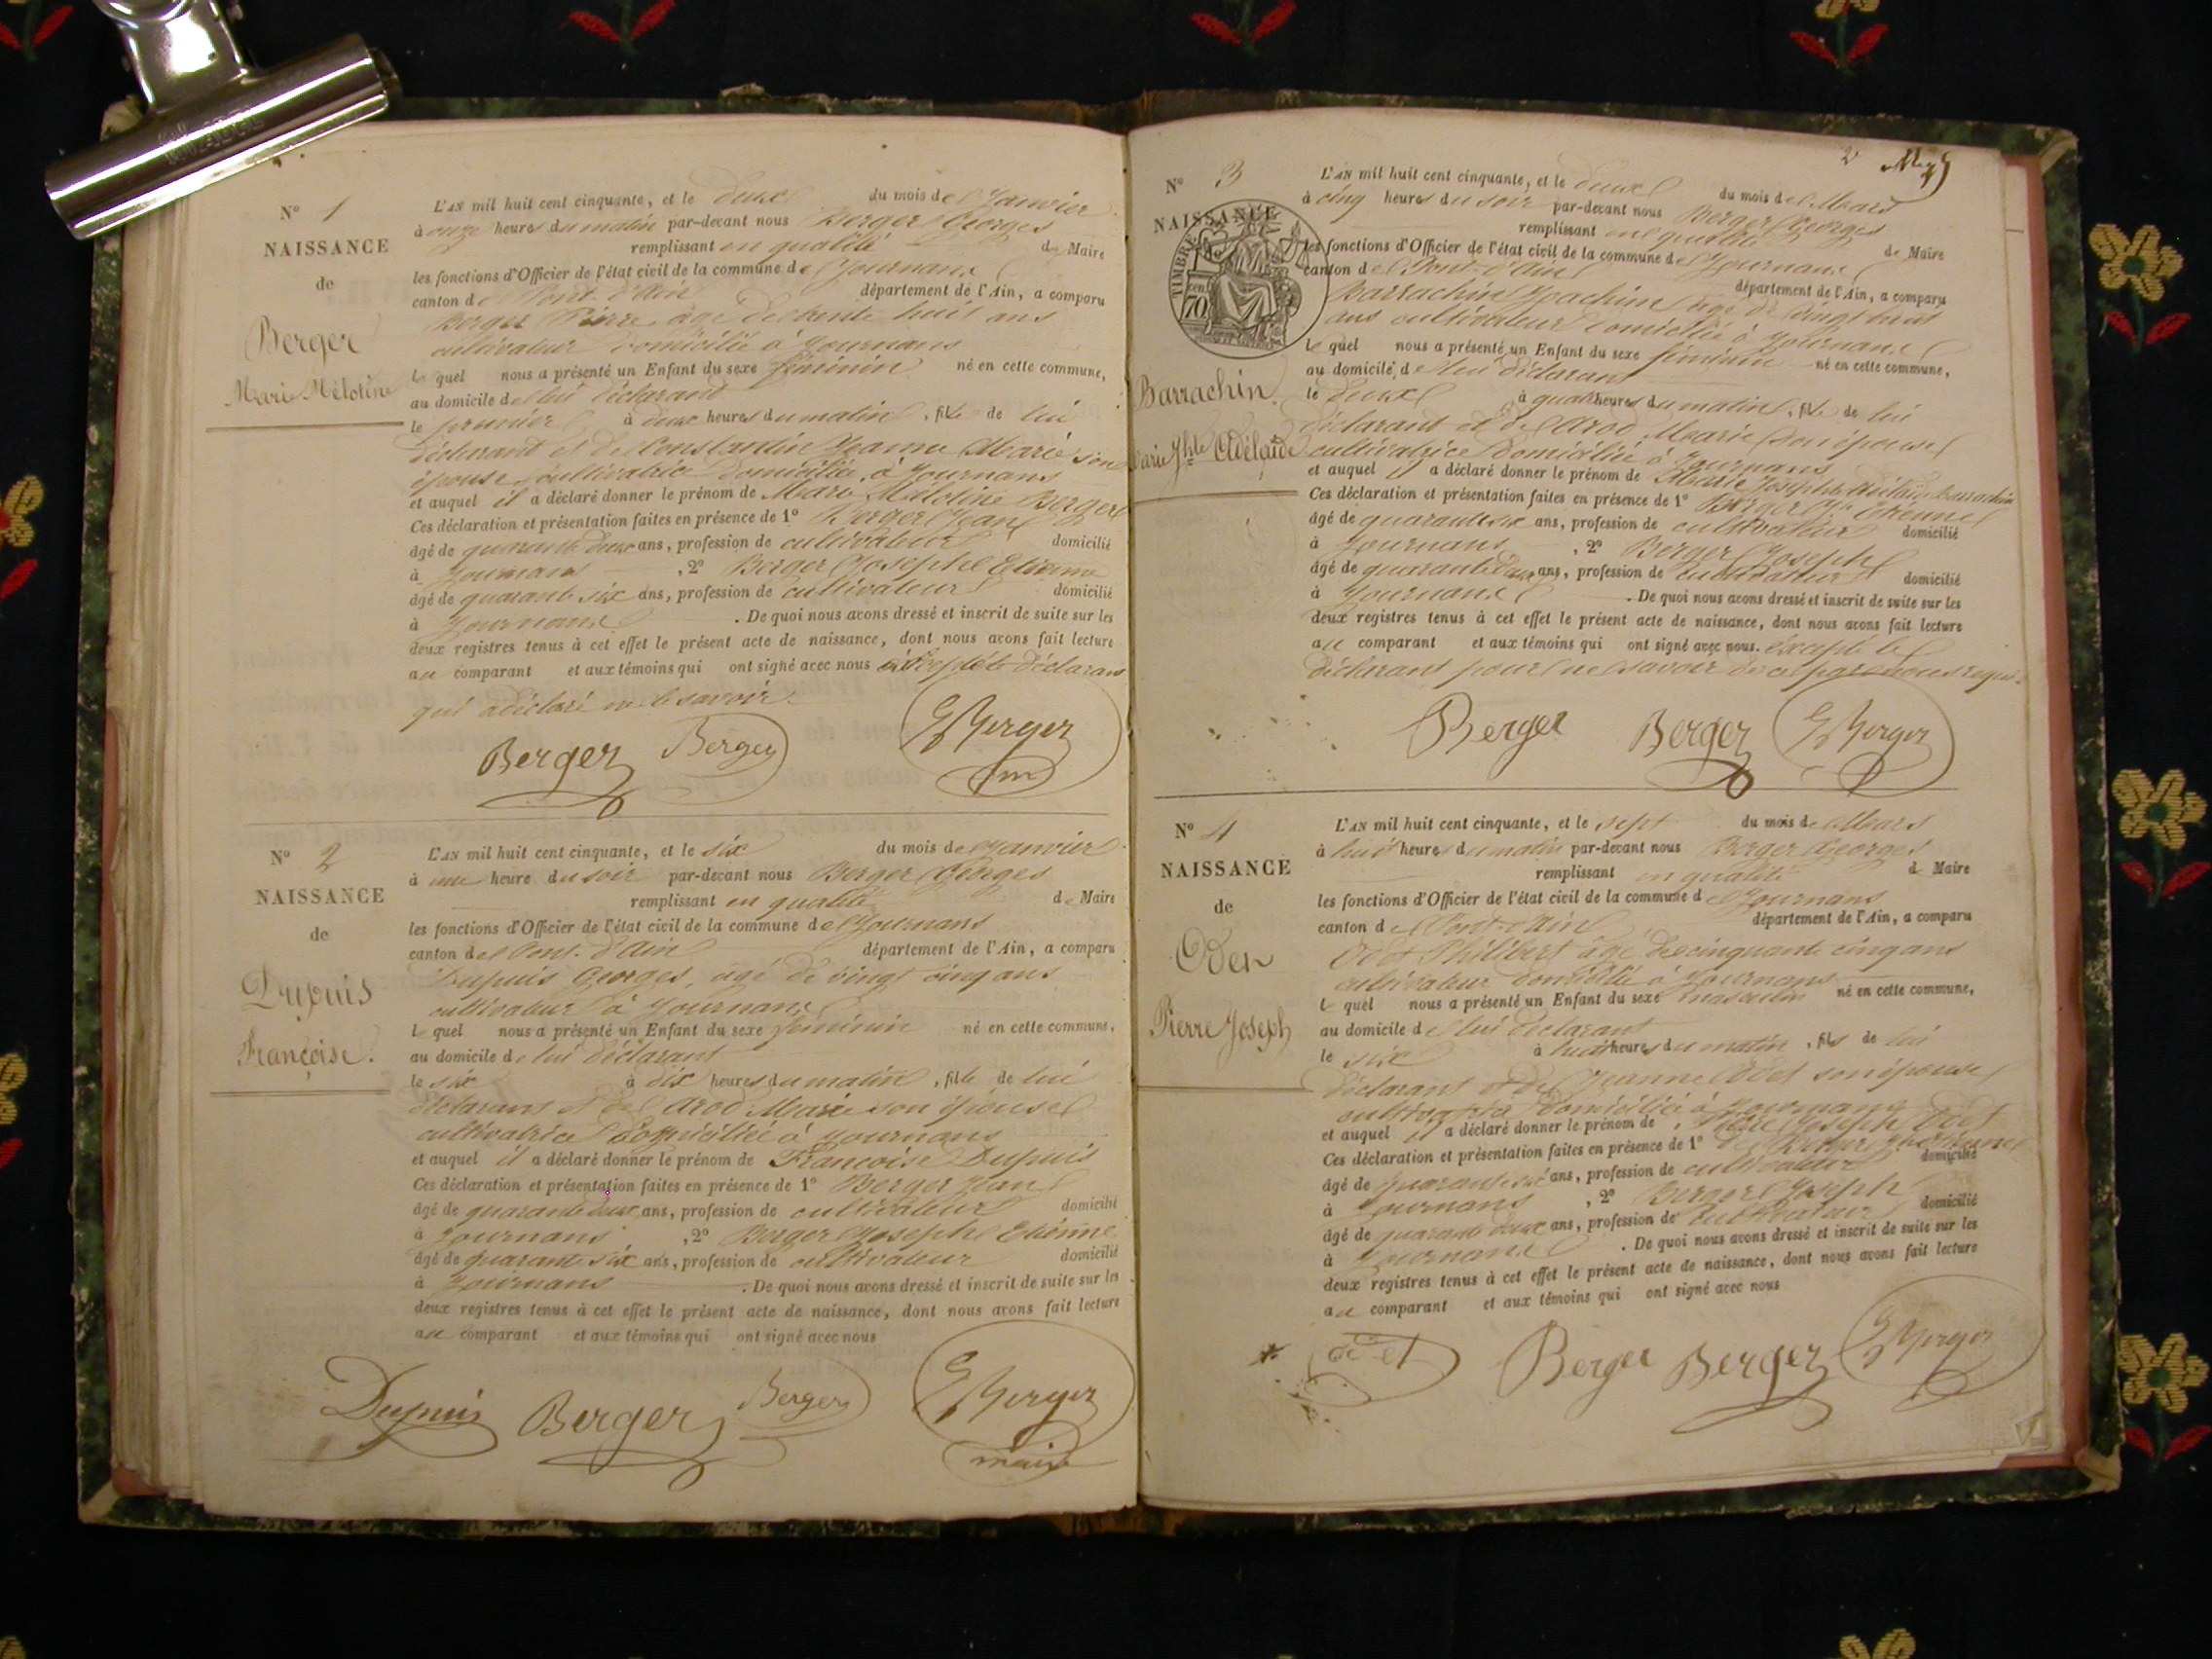 N° 1
NAISSANCE
de
Berger
Marie Mélotine
L'AN mil huit cent cinquante, et le deux du mois de Janvier
à onze heures du matin par-devant nous Berger Georges
remplissant en qualité de Maire
les fonctions d'Officier de l'état civil de la commune de Journans
canton de Pont-d'Ain département de l'Ain, a comparu
Berger Pierre âgé de trente huit ans
cultivateur domicilié à Journans
lequel nous a présenté un Enfant du sexe féminin né en cette commune,
au domicile de lui déclarant
le premier à deux heures du matin, fille de lui
déclarant et de Constantin Jeanne Marie son
épouse cultivatrice domiciliée à Journans
et auquel il a déclaré donner le prénom de Marie Mélotine Berger
Ces déclaration et présentation faites en présence de 1° Berger Jean
âgé de quarante deux ans, profession de cultivateur domicilié
à Journans, 2° Berger Joseph Etienne
âgé de quarante six ans, profession de cultivateur domicilié
à Journans. De quoi nous avons dressé et inscrit de suite sur les
deux registres tenus à cet effet le présent acte de naissance, dont nous avons fait lecture
au comparant et aux témoins qui ont signé avec nous excepté le déclarant
qui a déclaré ne le savoir.
Berger Berger G Berger
N° 2
NAISSANCE
de
Dupuis
Françoise.
L'AN mil huit cent cinquante, et le six du mois de Janvier
à une heure du soir par-devant nous Berger Georges
remplissant en qualité de Maire
les fonctions d'Officier de l'état civil de la commune de Journans
canton de Pont-d'Ain département de l'Ain, a comparu
Dupuis Georges, âgé de vingt cinq ans
cultivateur à Journans
lequel nous a présenté un Enfant du sexe féminin né en cette commune,
au domicile de lui déclarant
le six à dix heures du matin, fille de lui
déclarant et de Arod Marie son épouse
cultivatrice domiciliée à Journans
et auquel il a déclaré donner le prénom de Françoise Dupuis
Ces déclaration et présentation faites en présence de 1° Berger Jean
âgé de quarante deux ans, profession de cultivateur domicilié
à Journans, 2° Berger Joseph Etienne
âgé de quarante six ans, profession de cultivateur domicilié
à Journans. De quoi nous avons dressé et inscrit de suite sur les
deux registres tenus à cet effet le présent acte de naissance, dont nous avons fait lecture
au comparant et aux témoins qui ont signé avec nous
Dupuis Berger Berger G Berger
maire
2
N° 3
NAISSANCE
TIMBRE
70
Barrachin
Marie Jhte Adélaïde
L'AN mil huit cent cinquante, et le deux du mois de Mars
à cinq heures du soir par-devant nous Berger Georges
remplissant en qualité de Maire
les fonctions d'Officier de l'état civil de la commune de Journans
canton de Pont-d'Ain département de l'Ain, a comparu
Barrachin Joachim âgé de vingt huit
ans cultivateur domicilié à Journans
lequel nous a présenté un Enfant du sexe féminin né en cette commune,
au domicile de lui déclarant
le deux à quatre heures du matin, fille de lui
déclarant et de Arod Marie son épouse
cultivatrice domiciliée à Journans
et auquel il a déclaré donner le prénom de Marie Josephte Adélaïde Barrachin
Ces déclaration et présentation faites en présence de 1° Berger Jh Etienne
âgé de quarante six ans, profession de cultivateur domicilié
à Journans, 2° Berger Joseph
âgé de quarante deux ans, profession de cultivateur domicilié
à Journans. De quoi nous avons dressé et inscrit de suite sur les
deux registres tenus à cet effet le présent acte de naissance, dont nous avons fait lecture
au comparant et aux témoins qui ont signé avec nous. excepté le
déclarant pour ne savoir de ce par nous requis.
Berger Berger G Berger
N° 4
NAISSANCE
de
Odet
Pierre Joseph
L'AN mil huit cent cinquante, et le sept du mois de Mars
à huit heures du matin par-devant nous Berger Georges
remplissant en qualité de Maire
les fonctions d'Officier de l'état civil de la commune de Journans
canton de Pont-d'Ain département de l'Ain, a comparu
Odet Philibert âgé de cinquante cinq ans
cultivateur domicilié à Journans
lequel nous a présenté un Enfant du sexe masculin né en cette commune,
au domicile de lui déclarant
le six à huit heures du matin, fils de lui
déclarant et de Jeanne Odet son épouse
cultivatrice domiciliée à Journans
et auquel il a déclaré donner le prénom de Pierre Joseph Odet
Ces déclaration et présentation faites en présence de 1° Berger Jh Etienne
âgé de quarante six ans, profession de cultivateur domicilié
à Journans, 2° Berger Joseph
âgé de quarante deux ans, profession de cultivateur domicilié
à Journans. De quoi nous avons dressé et inscrit de suite sur les
deux registres tenus à cet effet le présent acte de naissance, dont nous avons fait lecture
au comparant et aux témoins qui ont signé avec nous
Odet Berger Berger G Berger